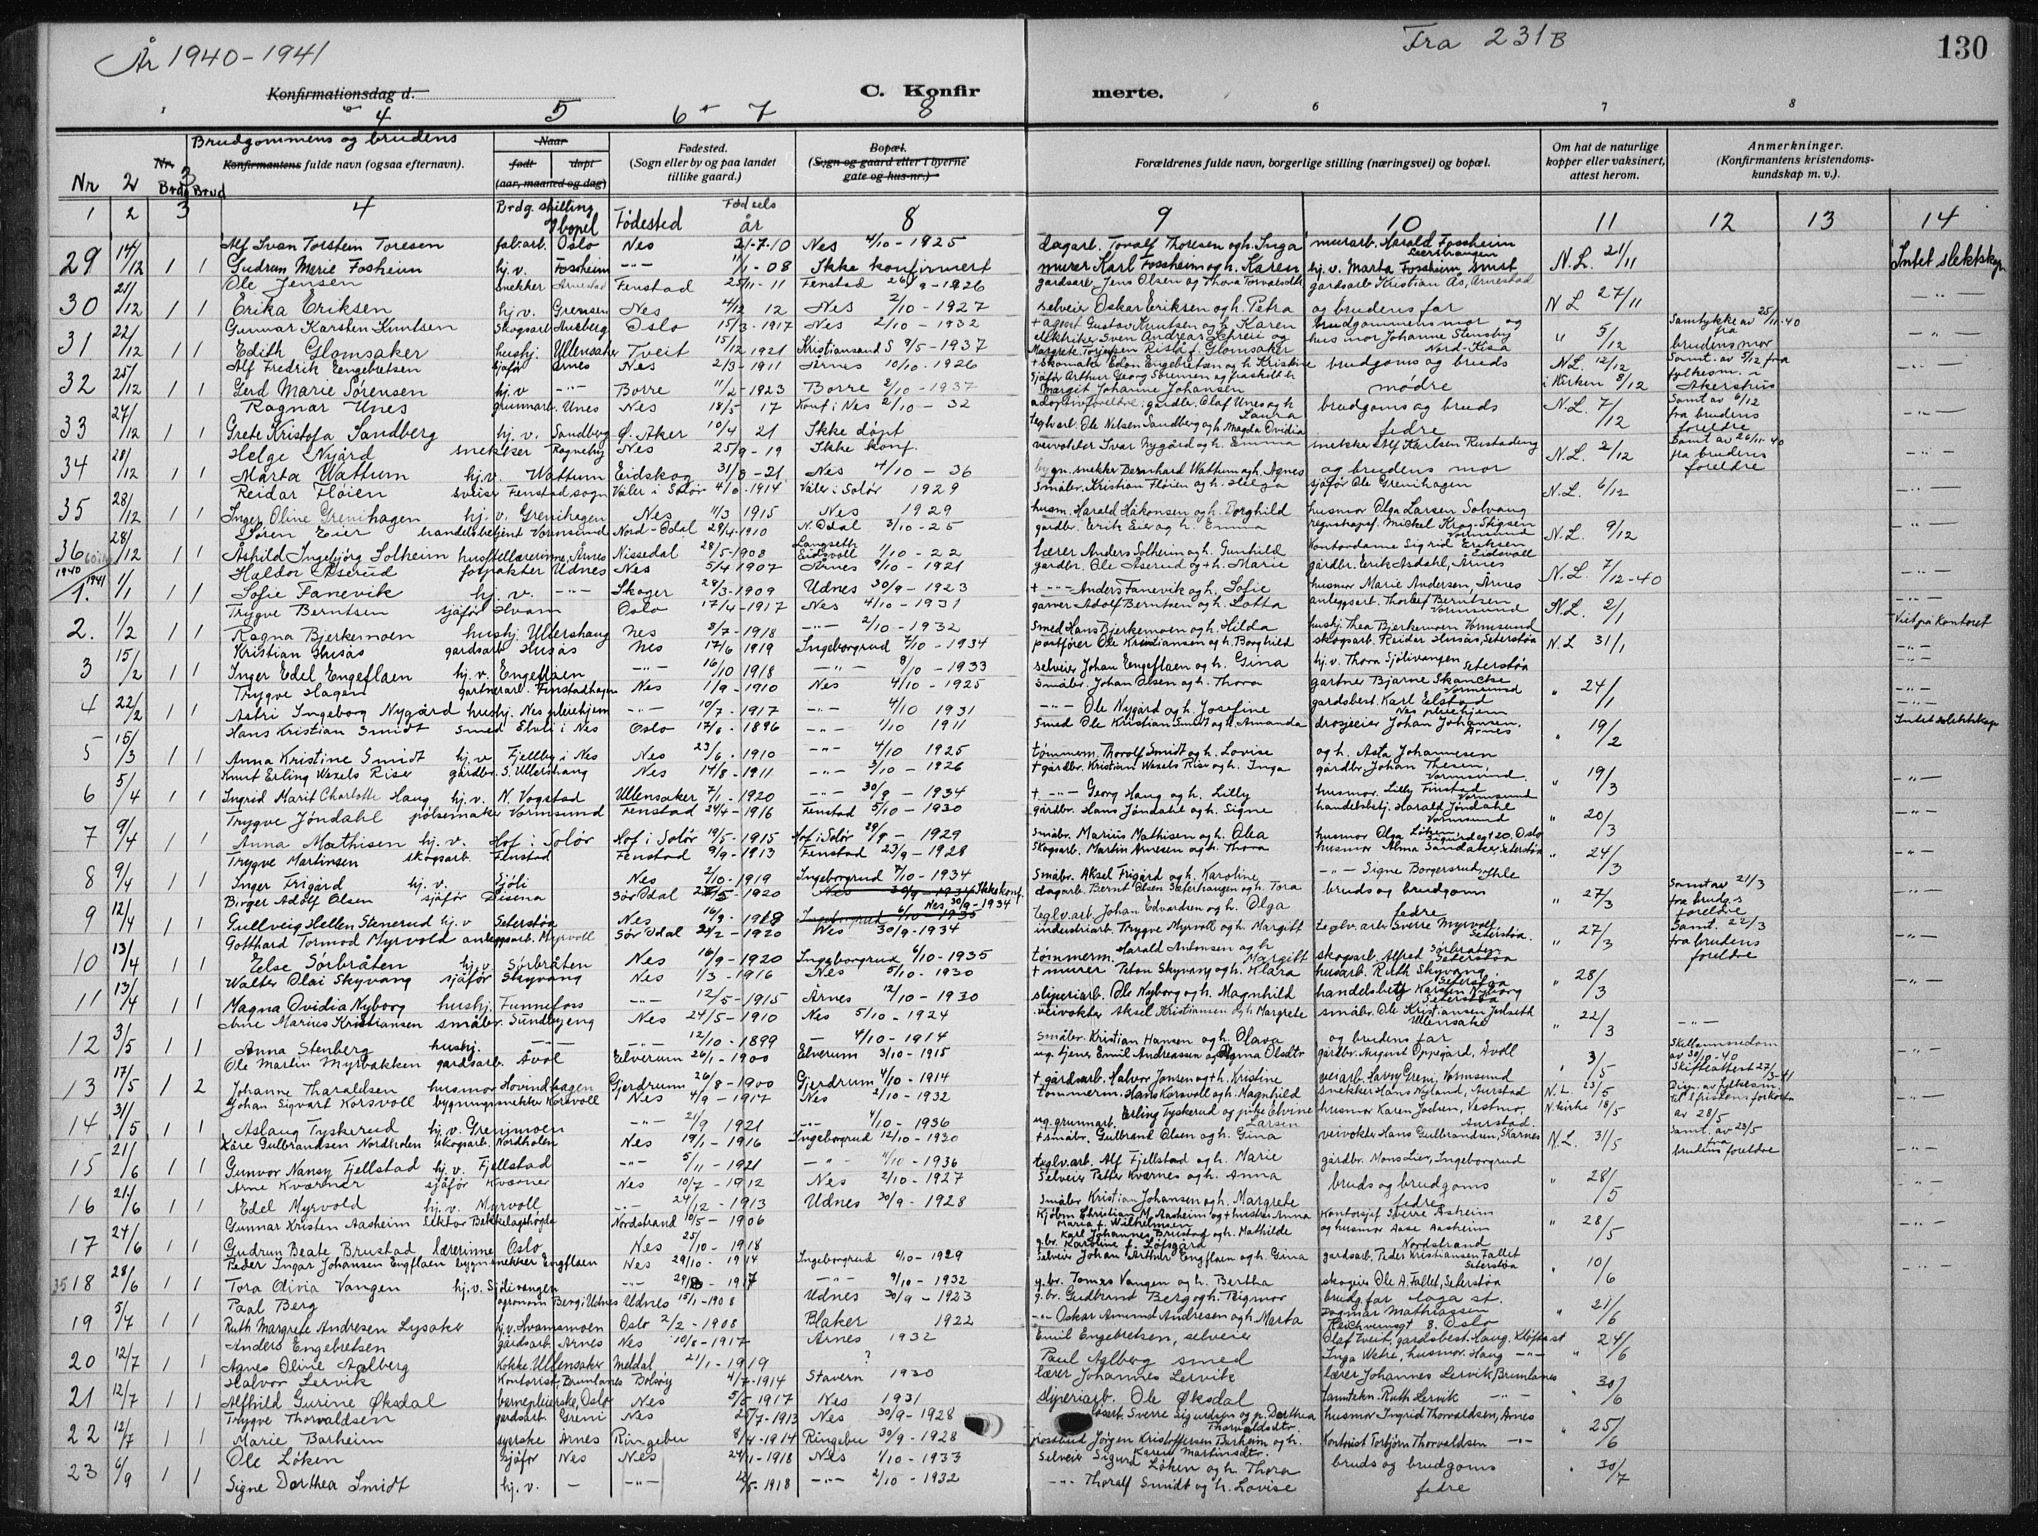 År 1940-1941
Fra 231B
130
Konfirmationsdag d.
C. Konfir
merte.
4 5 6 7 8
6 7 8
Brudgommens og brudens
Nr. Konfirmantens fulde navn (ogsaa efternavn).
Naar født døpt (aar, maaned og dag)
Fødested. (Sogn eller by og paa landet tillike gaard.)
Bopæl. (Sogn og gaard eller i byerne gate og hus-nr.)
Forældrenes fulde navn, borgerlige stilling (næringsvei) og bopæl.
Om hat de naturlige kopper eller vaksinert, attest herom.
Anmerkninger. (Konfirmantens kristendomskundskap m. v.).
Nr 2 3 Brdg Brud
1 2 3 4 Brdg. stilling og bopel Fødested Fødsels år 8 9 10 11 12 13 14
Alf Ivan Torstein Toresen fab.arb. Oslo Nes 2/-7-10 Nes 4/10-1925 dagarb. Torolf Thoresen og h. Inga murarb. Harald Fossheim
29 14/12 1 1 Gudrun Marie Fosheim hj.v. Fossheim -"- 11/1-08 Ikke konfirmert murer Karl Fossheim og h. Karen hj.v. Marta Fossheim Smst N.L. 21/11 Intet slektskap
Ole Jensen Snekker Arnestad Fenstad 25/11-11 Fenstad 26/9-1926 gardsarb Kristian As, Arnestad
30 21/12 1 1 Erika Eriksen hj.v. Grensen Nes 4/12 12 Nes 2/10-1927 selveier Oskar Eriksen og h. Petra og brudens far N L 27/11 -"-
Gunnar Karsten Knutsen Skogsarb Aueberg Oslo 15/3-1917 Nes 2/10-1932 + agent Gustav Knutsen og h. Karen brudgommens mor og Samtykke av 25/11-40
31 22/12 1 1 Edith Glomsaker hushj. Ullensaker Tveit 15/12 1921 Kristiansand S 9/5-1937 husmor Johanne Stensby " 5/12 fra brudens mor -"-
Alf Fredrik Engebretsen sjåfør Årnes Nes 2/3-1911 Årnes 10/10-1926 brudgoms og bruds N.L. 12/12 Samt. av 5/12 fra
32 25/12 1 1 Gerd Marie Sørensen hj.v -"- Borre 11/2-1923 Borre 2/10-1937 Margit Johanne Johansen mødre i Kirken 8/12 fylkesm. i Akershus -"-
Ragnar Unes grunnarb. Unes Nes 18/5 17 Konf i Nes 2/10-32 adoptivforeldre: gardbr. Olaf Unes og h Laura brudgoms og bruds N.L. 7/12 Samt av 6/12
33 27/12 1 1 Grete Kristofa Sandberg hj.v. Sandberg Ø. Aker 10/4 21 Ikke døpt teglv.arb Ole Nilsen Sandberg og h Magda Ovidia fedre fra brudens foreldre -"-
Helge Nyård snekker Rogneby Nes 25/9-19 Ikke konf. veivokter Ivar Nygård og h. Emma snekker Alf Karlsen Rustadeng N.L. 2/12 Samt av 26/11-40
34 28/12 1 1 Marta Wattum hj.v. Wattum Eidskog 31/8-21 Nes 4/10-36 bygn. snekker Bernhard Wattum og h. Agnes og brudens mor fra brudens foreldre -"-
Reidar Fløien sveiser Fenstad sogn Våler i Solør 4/8-1914 Våler i Solør 1929 Småbr. Kristian Fløien og h. Helga sjåfør Ole Grenihagen N.L. 6/12
35 28/12 1 1 Inger Oline Grenihagen hj.v. Grenihagen Nes 11/3 1915 Nes 1929 husm. Harald Håkonsen og h. Borghild husmor Olga Larsen Solvang -"-
Søren Eier handelsbetjent Vormsund Nord-Odal 29/4-1910 N. Odal 3/10-25 gårdbr. Erik Eier og h. Emma Vormsund N.L. 9/12
36 28/12 1 1 Åshild Ingebjørg Solheim husstellærerinne, Årnes Nissedal 28/5-1908 Langseth Eidsvoll 1/10-22 Lærer Anders Solheim og h. Gunhild Kontordame Sigrid Eriksen Eidsvoll -"-
1940 1941 Haldor Åserud forpakter Udnes Nes 5/4 1907 Årnes 9/10-1921 gårdbr. Ole Åserud og h. Marie gårdbr. Erik Asdahl, Årnes N.L. 7/12-40
1. 1/1 1 1 Sofie Fanevik hj.v. -"- Skoger 29/3-1909 Udnes 30/9-1923 + -"- Anders Fanevik og h. Sofie husmor Marie Andersen, Årnes -"-
Trygve Berntsen sjåfør Hvam Oslo 17/4-1917 Nes 4/10-1931 garver Adolf Berntsen og h. Lotta anleggsarb. Thorleif Berntsen Vormsund N.L. 2/1
2. 1/2 1 1 Ragna Bjerkemoen hushj. Ullershaug Nes 8/7-1918 -"- 2/10-1932 Smed Hans Bjerkemoen og h. Hilda hushj. Thea Bjerkemoen Vormsund Vist på kontoret
Kristian Husås gardsarb Husås Nes 17/6 1919 Ingeborgrud 7/10-1934 postfører Ole Kristiansen og h. Borghild skogsarb. Reider Husås, Seterstøa N.L 31/1 -"-
3 15/2 1 1 Inger Edel Engeflaen hj.v. Engeflaen -"- 16/10 1918 -"- 8/10-1933 selveier Johan Engeflaen og h. Gina hj.v. Thora Sjølivangen Seterstøa -"-
Trygve Hagen gartnerarb. Fenstadhagen Nes 1/9-1910 Nes 4/10-1925 Småbr. Johan Olsen og h. Thora gartner Bjarne Skancke Vormsund " 24/1 -"-
4 22/2 1 1 Astri Ingeborg Nygård hushj. Nes pleiehjem -"- 10/7-1917 -"- 4/10 1931 -"- Ole Nygård og h. Josefine gardsbest. Karl Elstad Nes pleiehjem -"-
Hans Kristian Smidt Smed Elvli i Nes Oslo 17/6-1896 1/10 1911 Smed Ole Kristian Smidt og h. Amanda drosjeeier Johan Johansen Årnes 19/2 Intet slektskap
5 15/3 1 1 Anna Kristine Smidt hj.v Fjellby i Nes Nes 23/6-1910 -"- 4/10 1925 tømmerm. Thorolf Smidt og h. Lovise og h. Asta Johannesen
Knut Erling Wexels Rise gårdbr. S. Ullershaug Nes 14/8-1911 -"- 3/10-1926 + gårdbr. Kristian Wexels Rise og h. Inga gårdbr Johan Thesen, Vormsund. " 19/3
6 5/4 1 1 Ingrid Marit Charlotte Haug hj.v. N. Vogstad Ullensaker 7/1-1920 -"- 30/9-1934 + -"- Georg Haug og h. Lilly husmor. Lilly Finstad Vormsund -"-
Trygve Jøndahl pølsemaker Vormsund Fenstad 24/4-1916 Fenstad 5/10-1930 gårdbr. Hans Jøndahl og h. Signe handelsbetj. Harald Jøndahl Vormsund " 20/3
7 9/4 1 1 Anna Mathisen hj.v. Hof i Solør Hof i Solør 19/5-1915 Hof i Solør 29/9-1929 Småbr. Marius Mathisen og h. Olea husmor Olga Løken Sigurdsgt 20. Oslo -"-
Trygve Martinsen skogsarb. Fenstad Fenstad 9/9-1913 Fenstad 23/9-1928 Skogsarb. Martin Arnesen og h. Thora husmor Alma Sandaker, Seterstøa " 24/3
8 9/4 1 1 Inger Frigård hj.v. Sjøli Nes 2/10-1919 Ingeborgrud 7/10-1934 Småbr. Aksel Frigård og h. Karoline -"- Signe Borgersrud, Ihle -"-
Birger Adolf Olsen sjåfør Disena Sør Odal 1920 Nes 30/9-1934 Ikke konf. dagarb. Bernt Olsen Seterhaugen og h. Tora bruds og brudgoms " 27/3 Samt av 21/3
9 12/4 1 1 Gullveig Hellen Stenerud hj.v Seterstøa Nes 16/9-1918 Nes, 30/9-1934 Ingeborgrud 6/10-1935 teglv.arb Johan Edvardsen og h. Olga fedre fra brudg.s foreldre -"-
Gotthard Tormod Myrvold anleggsarb. Myrvoll Sør Odal 24/2-1920 Nes 30/9-1934 industriarb. Trygve Myrvoll og h. Margitt teglv.arb Sverre Myrvoll Seterstøa. " 27/3 Samt. 22/3
10 13/4 1 1 Else Sørbråten hj.v Sørbråten Nes 16/9-1920 Ingeborgrud 6/10-1935 tømmerm. Harald Antonsen og h Margitt skogsarb. Alfred Sørbråten Seterstøa fra brudens foreldre -"-
Walter Olai Skyvang sjåfør Skyvang Nes 1/3-1916 Nes 5/10-1930 + murer Peton Skyvang og h. Klara husarb. Ruth Skyvang Seterstøa " 28/3
11 13/4 1 1 Magna Ovidia Nyborg hushj. Funnefoss -"- 12/5-1915 Årnes 12/10-1930 sliperiarb. Ole Nyborg og h. Magnhild handelsbetj Karsten Nyborg Seterstøa -"-
Arne Marius Kristiansen småbr. Sundbyeng Nes 24/5-1910 Nes 5/10-1924 veivokter Aksel Kristiansen og h. Margrete småbr. Ole Kristiansen Jødseth Ullensaker " 22/3
12 3/5 1 1 Anna Stenberg hushj. -"- -"- 12/10-1899 - 4/10-1914 Småbr. Kristian Hansen og h. Olava og brudens far -"-
Ole Martin Myrbakken gardsarb. Åvol Elverum 26/1-1900 Elverum 3/10-1915 ug. tjener Emil Andreassen og Anna Olsdtr gårdbr. August Oppegård, Åvoll " 3/5 av 30/10-40
13 17/5 1 2 Johanne Tharaldsen husmor Hovindhagen Gjerdrum 26/8-1900 Gjerdrum 4/10-1914 + gårdsarb. Halvor Jonsen og + h. Kristine veiarb. Harry Greni, Vormsund Skifteattest 27/3-41 -"-
Johan Sigvart Korsvoll bygningssnekker Korsvoll Nes 4/9-1917 Nes 2/10-1932 Tømmerm. Hans Korsvoll og h. Magnhild snekker Hans Nyland, Aurstad N.L. 23/5
14 31/5 1 1 Aslaug Tyskerud hj.v. Grenimoen -"- 21/9 1921 4/10-1936 ug. grunnarb. Erling Tyskerud og pike Elvine Larsen husmor Karen Jødsen, Vestmo, Aurstad. N. kirke 18/5 av 28/5 -"-
Kåre Gulbrandsen Nordholen skogsarb. Nordholen Nes 19/1-1916 Ingeborgrud 12/10-1930 + småbr. Gulbrand Olsen og h. Gina veivokter Hans Gulbrandsen, Skarnes N.L. 31/5 Samt. av 23/5
15 21/6 1 1 Gunvor Nansy Fjellstad hj.v. Fjellstad -"- 5/11-1921 -"- 4/10-1936 teglv.arb. Alf Fjellstad og h. Marie gårdbr. Mons Lier, Ingeborgrud fra brudens foreldre -"-
Arne Kværner sjåfør Kværner Nes 10/7-1912 Nes 2/10-1927 Selveier Petter Kværnes og h. Anna bruds og brudgoms " 28/5
16 21/6 1 1 Edel Myrvold hj.v. Myrvoll -"- 24/12-1913 Udnes 30/9-1928 Småbr. Kristian Johansen og h. Margrete fedre -"-
Gunnar Kristen Aasheim lektor Bekkelagshøgda Nordstrand 10/5-1906 Kjøbm Christian M. Aasheim og + hustru Anna Maria f. Wilhelmsen Kontorsjef Sverre Åsheim og husmor Aase Aasheim Nordstrand " 28/5
17 24/6 1 1 Gudrun Beate Brustad lærerinne Oslo Nes 25/10-1918 g.br. Karl Johannes Brustad og h. Mathilde Karoline f. Løfsgård -"-
Peder Ingar Johansen Engflaen bygn.snekker Engflaen Nes 29/10-1914 Ingeborgrud 6/10-1929 Selveier Johan Arthur Engflaen og h. Gina gardsarb. Peder Kristiansen Fallet Seterstøa " 10/6
18 28/6 1 1 Tora Olivia Vangen hj.v. Sjølivangen -"- 1917 -"- 9/10-1932 g.br. Tomas Vangen og h. Bertha skogeier Ole A. Fallet, Seterstøa -"-
Paal Berg agronom Berg i Udnes Udnes 15/1-1908 Udnes 30/9-1923 g.br. Gudbrand Berg og h. Rigmor brudg. far Haga st. " 21/6
19 5/7 1 1 Ruth Margrete Andresen Lysaker hj.v. Hvamsmoen Oslo 2/2-1908 Blaker 1922 -"- Oskar Amund Andresen og h. Marta Dagmar Mathiassen Reichweinsgt 8. Oslo
Anders Engebretsen gårdsarb. Årnes Nes 10/8-1917 Årnes 1932 Emil Engebretsen, selveier Olaf Tveit, gardsbest. Haug, Kløfta st 24/6
20 12/7 1 1 Agnes Oline Aalberg Kokke Ullensaker Meldal 21/1-1919 ? Paul Aalberg smed Inga Wetre, husmor, Haug -"-
Halvor Lervik Kontorist, Brunlanes Bolsøy 4/7-1914 Stavern 1930 lærer Johannes Lervik lærer Johannes Lervik, Brunlanes 30/6
21 12/7 1 1 Alfhild Gurine Øksdal barnepleierske, Oslo Nes 5/5 1917 Nes 1931 sliperiarb. Ole Øksdal Ruth Lervik -"-
Trygve Thorvaldsen gardsarb. Greni Nes 25/7-1913 Nes 30/9-1928 Sverre Sigurdsen og p. Dorthea Thorvaldsdtr. husmor Ingrid Thorvaldsen, Årnes 25/6
22 12/7 1 1 Marie Barheim syerske Årnes Ringebu 8/4-1914 Ringebu 30/9-1928 postbud Jørgen Kristoffersen Barheim og h. Karen Martinsdtr. Kontorist Torbjørn Thorvaldsen -"-
Ole Løken Sjåfør Nes Nes 24/1-1918 Nes 1/10-1933 Selveier Sigurd Løken og h. Thora bruds og brudgoms 30/7
23 6/9 1 1 Signe Dorthea Smidt hj.v. - -"- 12/5-1918 -"- 2/10-1932 -"- Thoralf Smidt og h. Lovise fedre